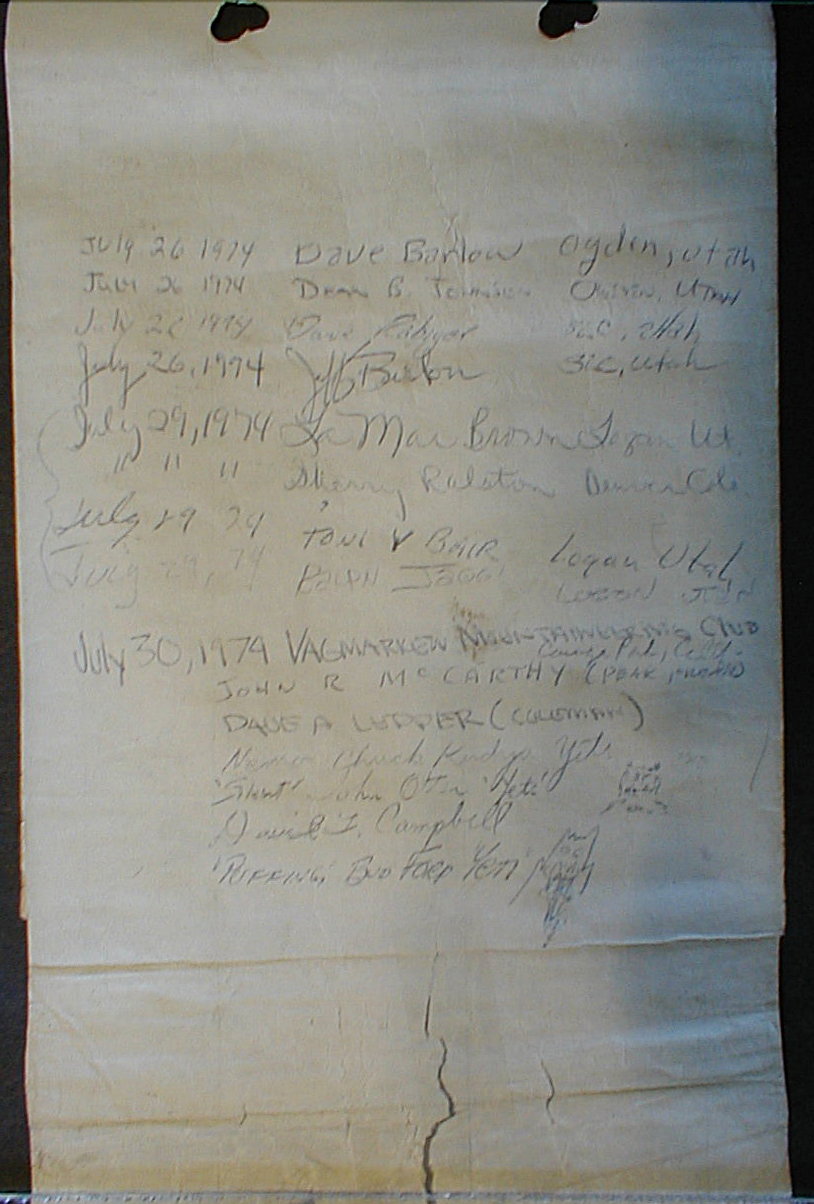 July 26 1974 Dave Barlow Ogden, Utah
July 26 1974 Dean B. Johnson Ogden, Utah
July 26 1974 Dave SLC, Utah
July 26, 1974 Jeff Barlow SLC, Utah
July 29, 1974 La Mar Brown Logan Ut.
" " " Sherry Ralston Denver Colo.
July 29 74 TONI V BAIR Logan Utah
July 29, 74 RALPH LOGAN UTAH
July 30, 1974 VAGMARKEN MOUNTAINEERING CLUB
Canoga Park, Calif.
JOHN R McCARTHY (PEAK
DAVE A (COLEMAN)
Chuck Yeti
John 'Yeti'
David L. Campbell
'PUFFING' BUD FORD YETI